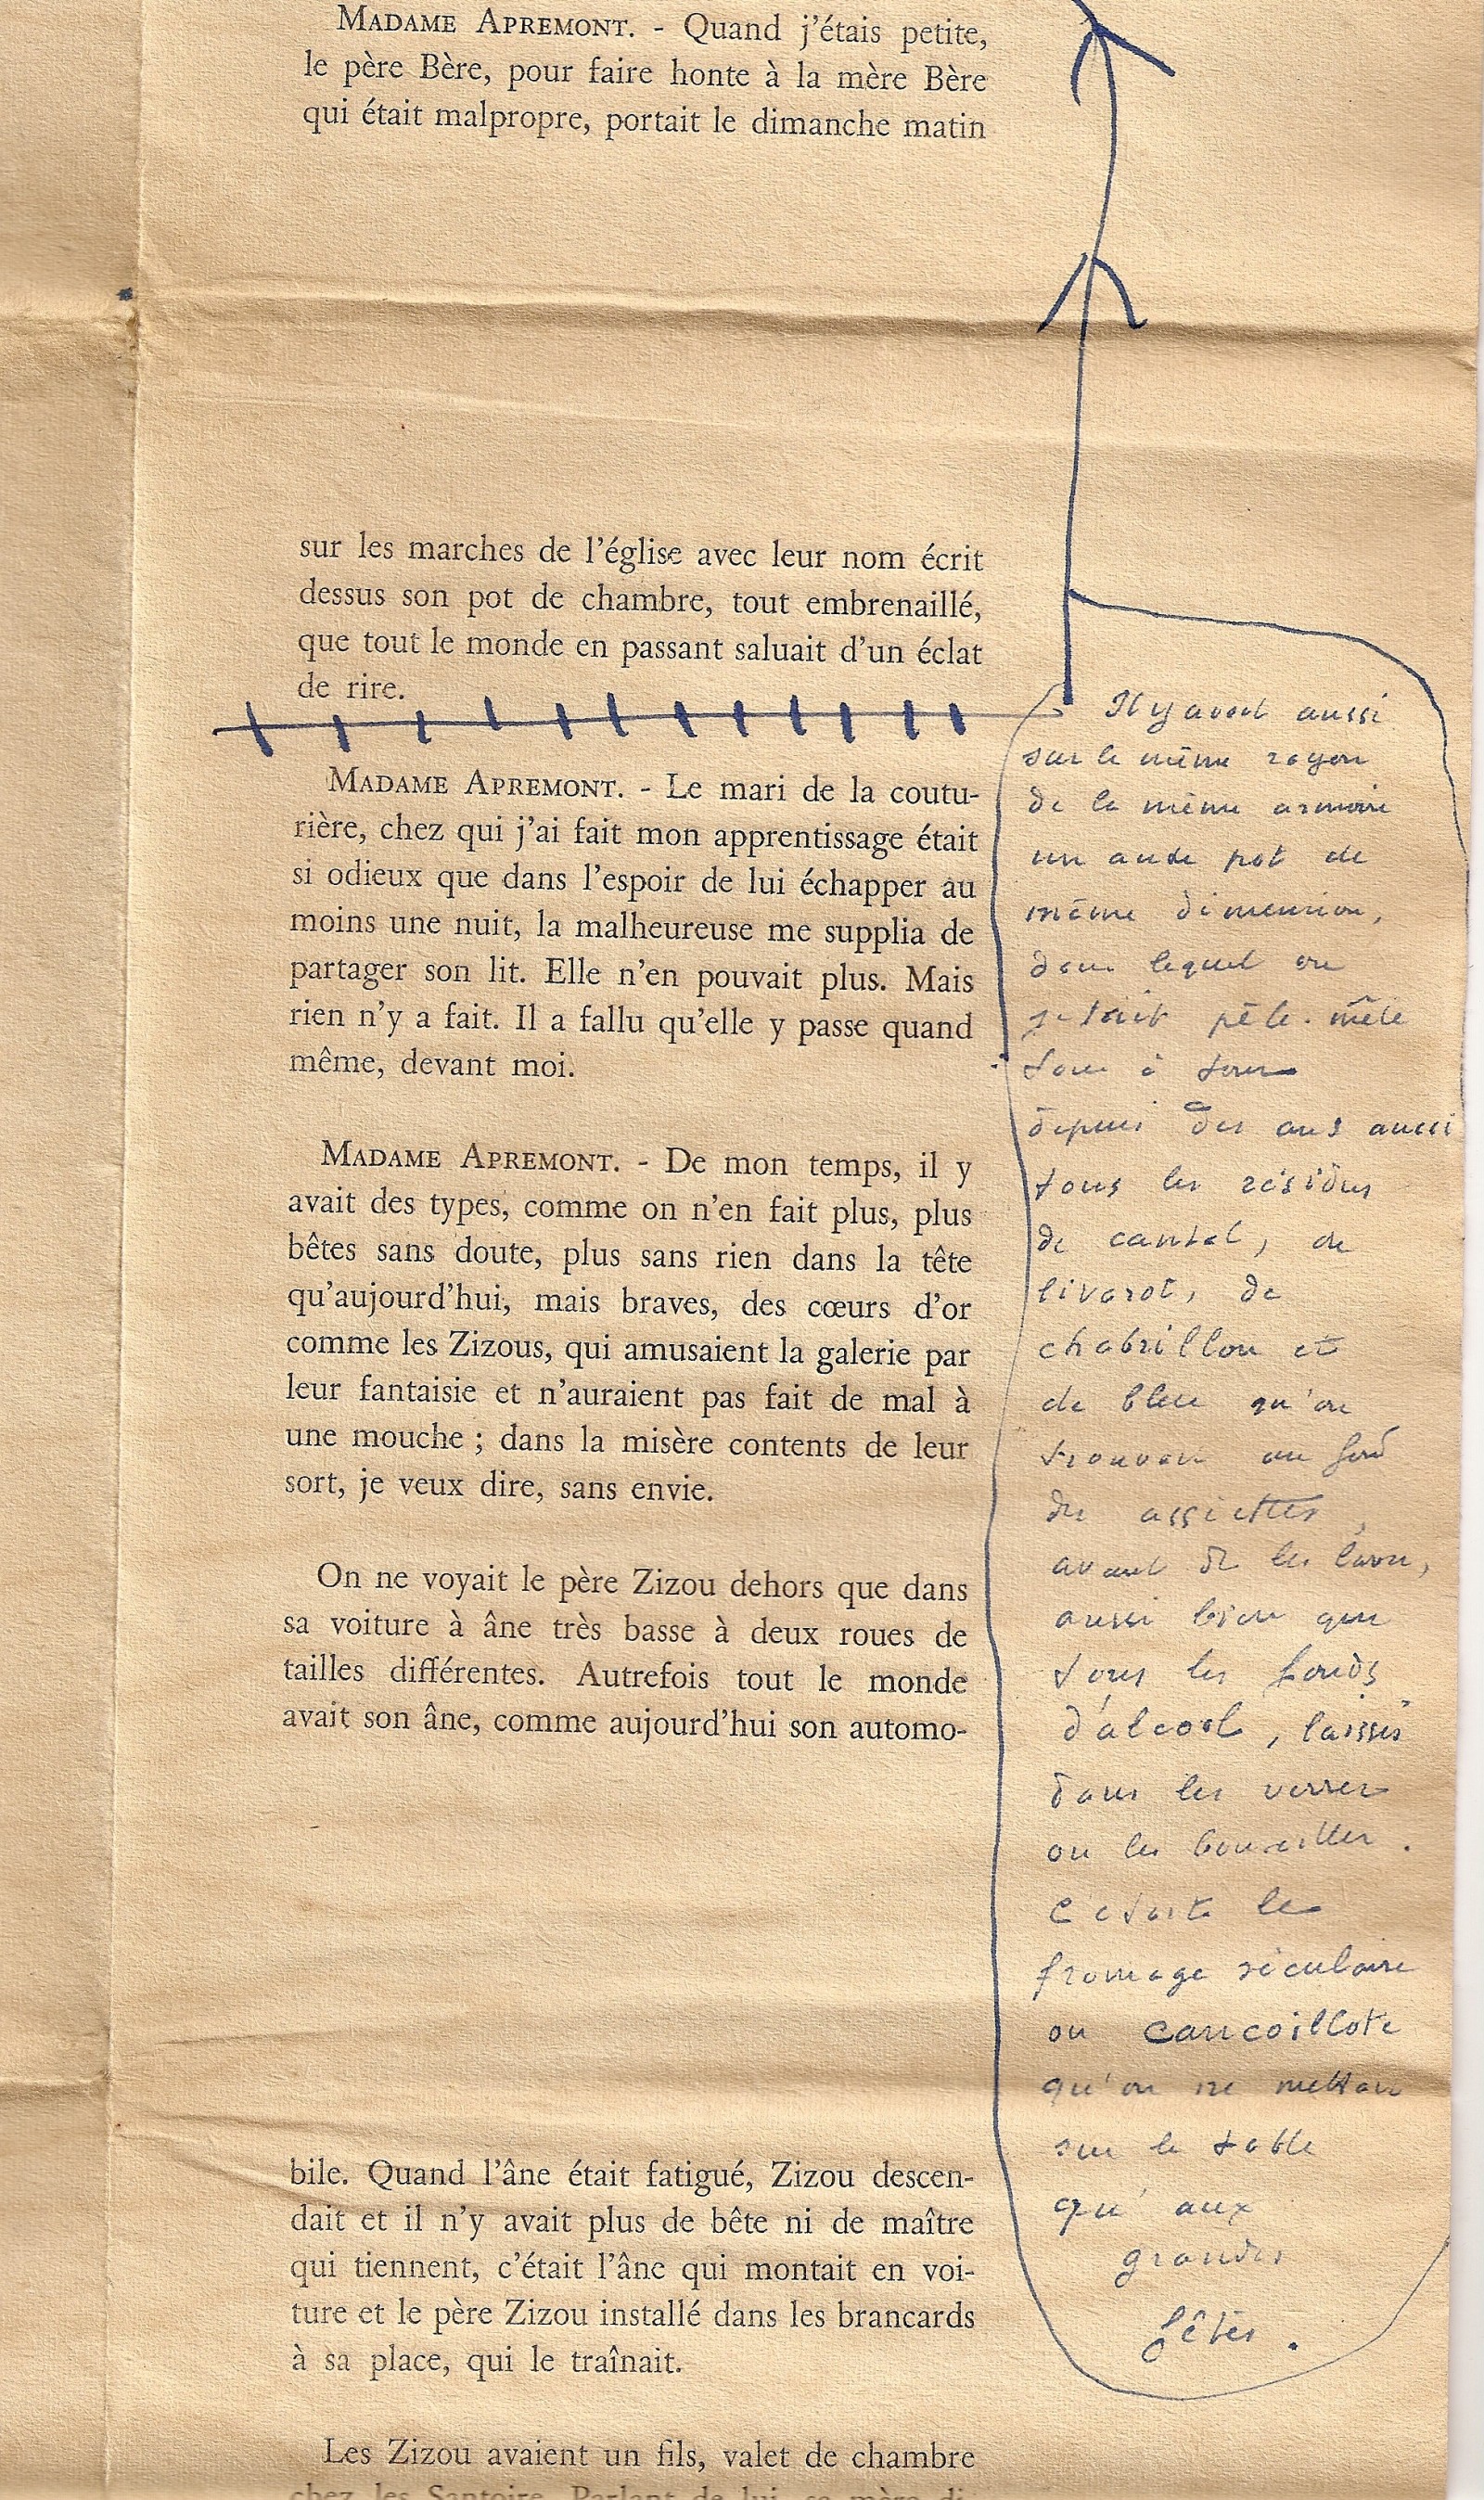 MADAME APREMONT. - Quand j'étais petite,
le père Bère, pour faire honte à la mère Bère
qui était malpropre, portait le dimanche matin
sur les marches de l'église avec leur nom écrit
dessus son pot de chambre, tout embrenaillé,
que tout le monde en passant saluait d'un éclat
de rire.
MADAME APREMONT. - Le mari de la coutu-
rière, chez qui j'ai fait mon apprentissage était
si odieux que dans l'espoir de lui échapper au
moins une nuit, la malheureuse me supplia de
partager son lit. Elle n'en pouvait plus. Mais
rien n'y a fait. Il a fallu qu'elle y passe quand
même, devant moi.
MADAME APREMONT. - De mon temps, il y
avait des types, comme on n'en fait plus, plus
bêtes sans doute, plus sans rien dans la tête
qu'aujourd'hui, mais braves, des cœurs d'or
comme les Zizous, qui amusaient la galerie par
leur fantaisie et n'auraient pas fait de mal à
une mouche ; dans la misère contents de leur
sort, je veux dire, sans envie.
On ne voyait le père Zizou dehors que dans
sa voiture à âne très basse à deux roues de
tailles différentes. Autrefois tout le monde
avait son âne, comme aujourd'hui son automo-
bile. Quand l'âne était fatigué, Zizou descen-
dait et il n'y avait plus de bête ni de maître
qui tiennent, c'était l'âne qui montait en voi-
ture et le père Zizou installé dans les brancards
à sa place, qui le traînait.
Les Zizou avaient un fils, valet de chambre
chez les Santoire. Parlant de lui, sa mère di-
Il y avait aussi
sur le même rayon
de la même armoire
un autre pot de
même dimension,
dans lequel on
jetait pêle-mêle
tour à tour
depuis des ans aussi
tous les résidus
de cantal, de
livarot, de
chabrillon et
de bleu qu'on
trouvait au fond
des assiettes,
avant de les laver,
aussi bien que
tous les fonds
d'alcool, laissés
dans les verres
ou les bouteilles.
C'était le
fromage séculaire
ou cancoillote
qu'on ne mettait
sur la table
qu'aux
grandes
fêtes.